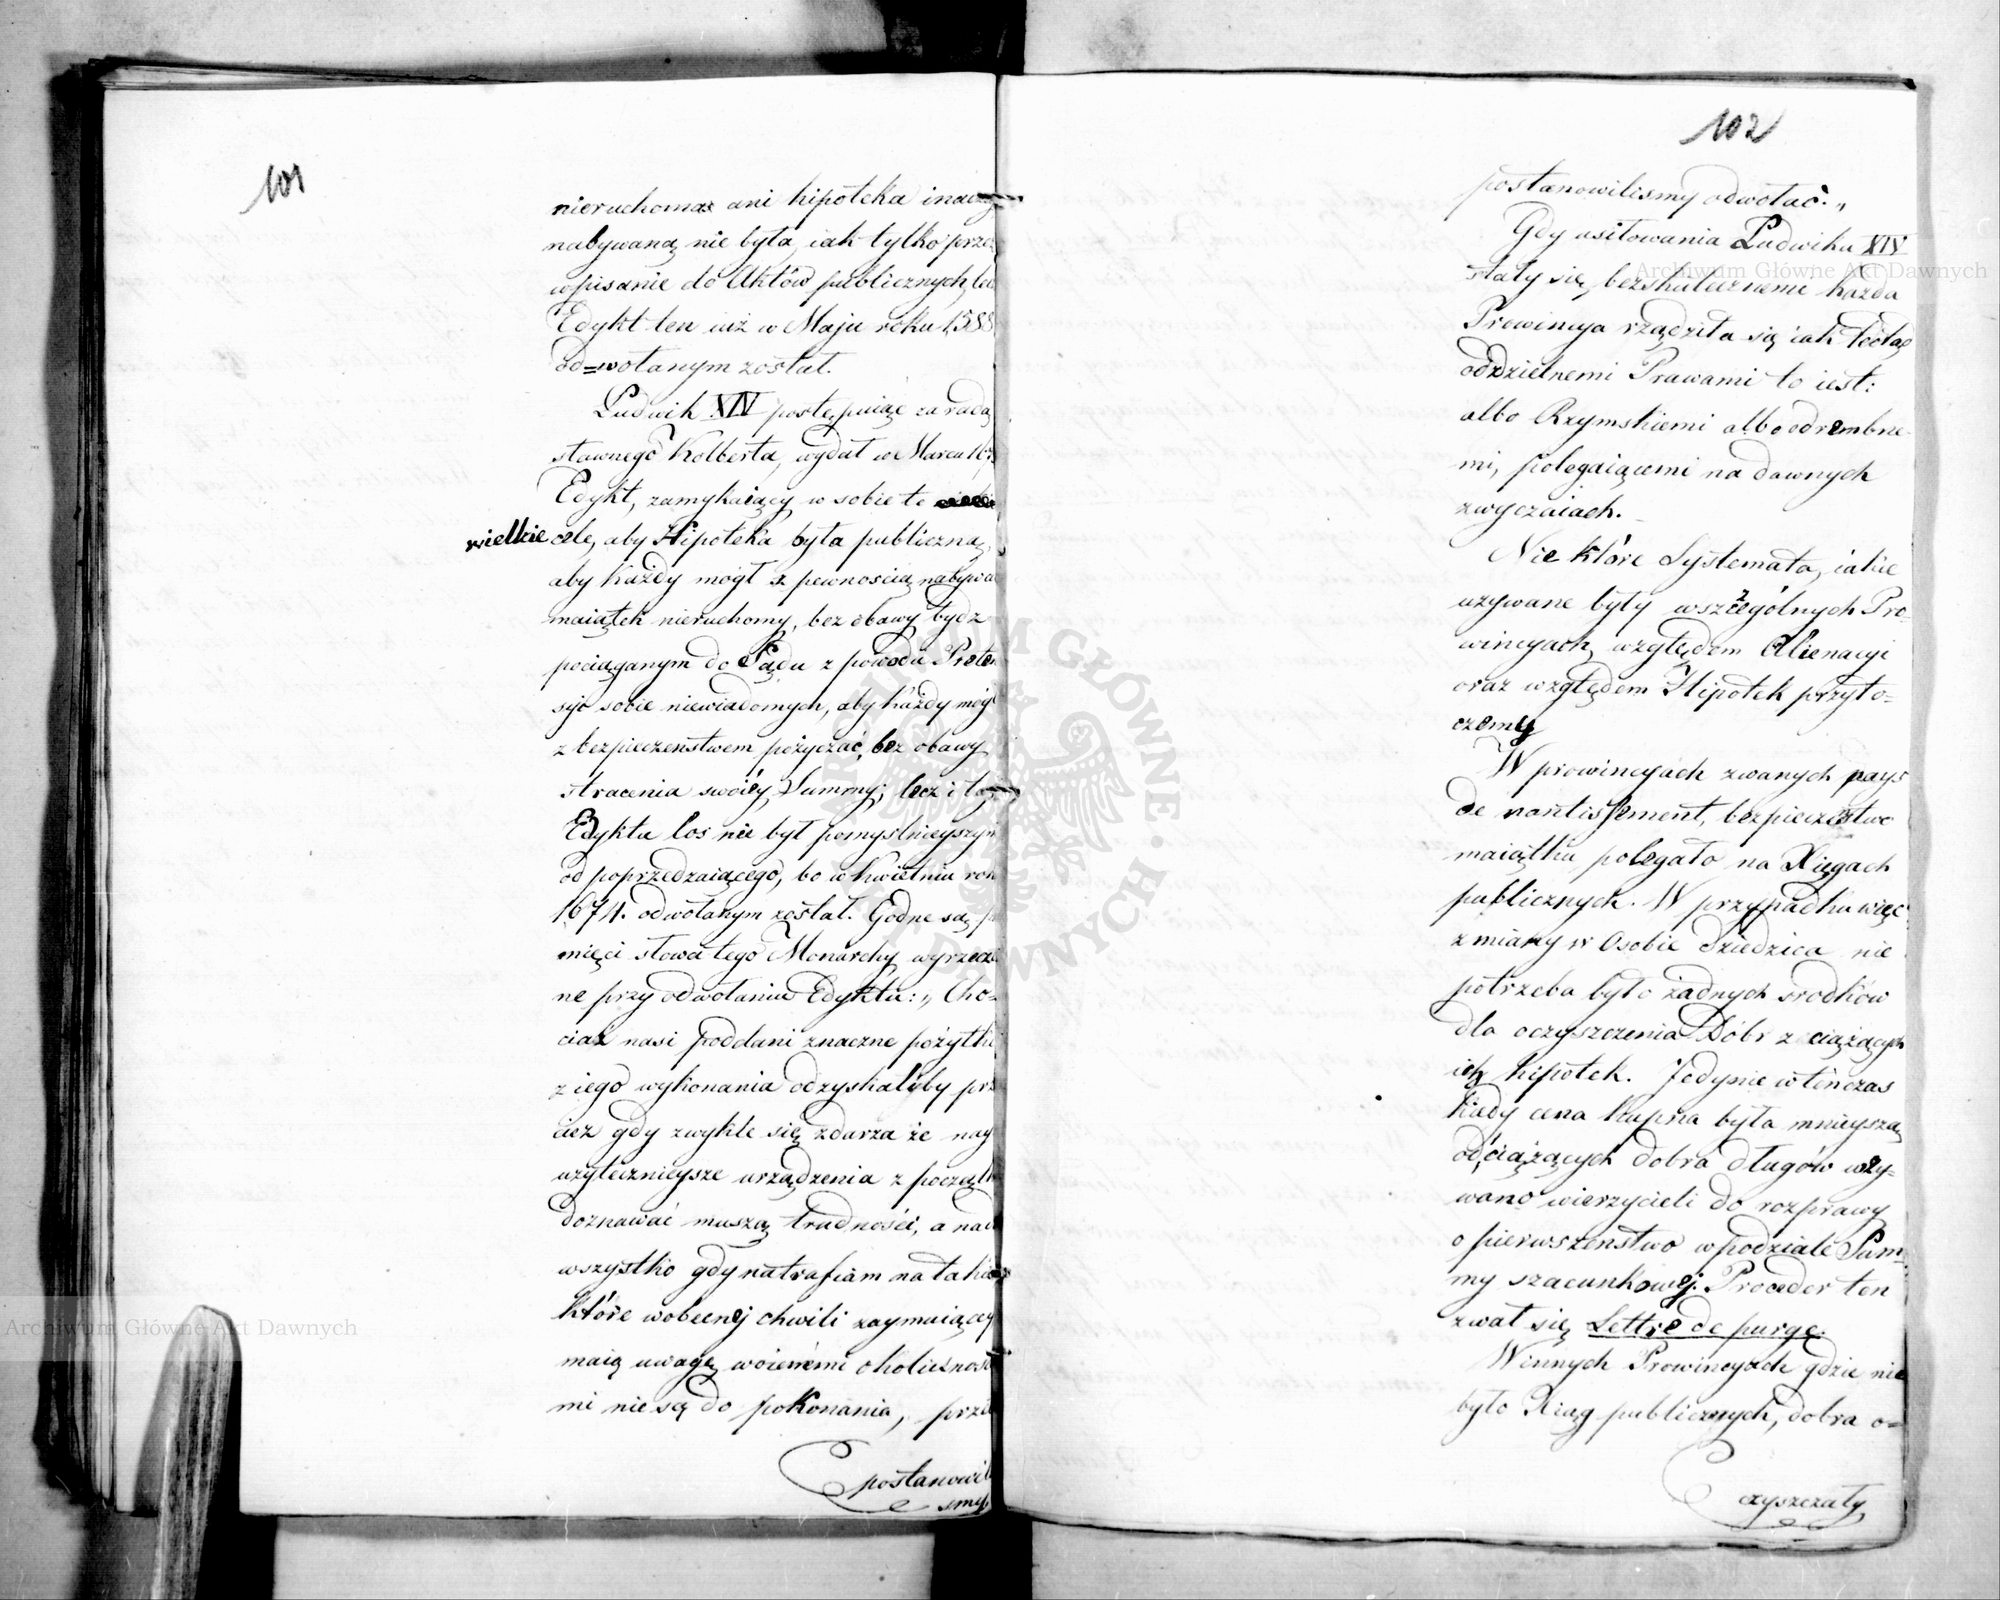 101
nieruchoma ani hipoteka inaczey
nabywaną nie była, iak tylko przez
wpisanie do Aktów publicznych, lecz
Edykt ten iuż w Maju roku 1588
od=wołanym został.
Ludwik XIV postępuiąc za radą
sławnego Kolberta, wydał w Marcu 167
Edykt, zamykaiący w sobie te
wielkie cele, aby Hipoteka była publiczną,
aby każdy mógł z pewnością nabywać
maiątek nieruchomy, bez obawy bydź
pociąganym do Sądu z powodu Preten
syi sobie niewiadomych, aby każdy mógł
z bezpieczeństwem pożyczać, bez obawy
stracenia swóiey Summy; lecz i tego
Edyktu los nie był pomyślnieyszym
od poprzedzaiącego, bo w Kwietniu rok
1674. odwołanym został. Godne są pa
mięci słowa tego Monarchy wyrzeczo
ne przy odwołaniu Edyktu: „ Cho=
ciaż nasi poddani znaczne pożytki
z iego wykonania odzyskałyby prze
cież gdy zwykle się zdarza że nay
użytecznieysze urządzenia z począt
doznawać muszą trudności, a nade
wszystko gdy natrafiam na takie
które wobecnej chwili zaymaiącey
maią uwagę woiennemi okolicznoscia
mi nie są do pokonania, prze
postanowili
smy
102
postanowilismy odwołać. „
Gdy usiłowania Ludwika XIV
stały się bezskutecznemi każda
Prowincya rządziła się iak
oddzielnemi Prawami to iest:
albo Rzymskiemi albo odrembne
mi, polegaiącemi na dawnych
zwyczaiach.
Nie które Systemata, iakie
używane były wszczególnych Pro=
wincyach, względem Alienacyi
oraz względem Hipotek przyto=
czemy
W prowincyach zwanych pays
de nantissement, bezpieczeństwo
maiątku polegało na Xięgach
publicznych. W przypadku więc
zmiany w Osobie dziedzica nie
potrzeba było żadnych srodków
dla oczyszczenia Dóbr z ciążących
ich hipotek. Jedynie wtenczas
kiedy cena kupna była mnieyszą
od ciążących dobra długów wzy=
wano wierzycieli do rozprawy
o pierwszenstwo w podziale Sum=
my szacunkowej. Proceder ten
zwał się Lettre de purge.
Winnych Prowincyach gdzie nie
było Xiąg publicznych, dobra o=
czyszczały
Archiwum Główne Akt Dawnych
Archiwum Główne Akt Dawnych
ARCHIWUM GŁÓWNE · AKT DAWNYCH ·